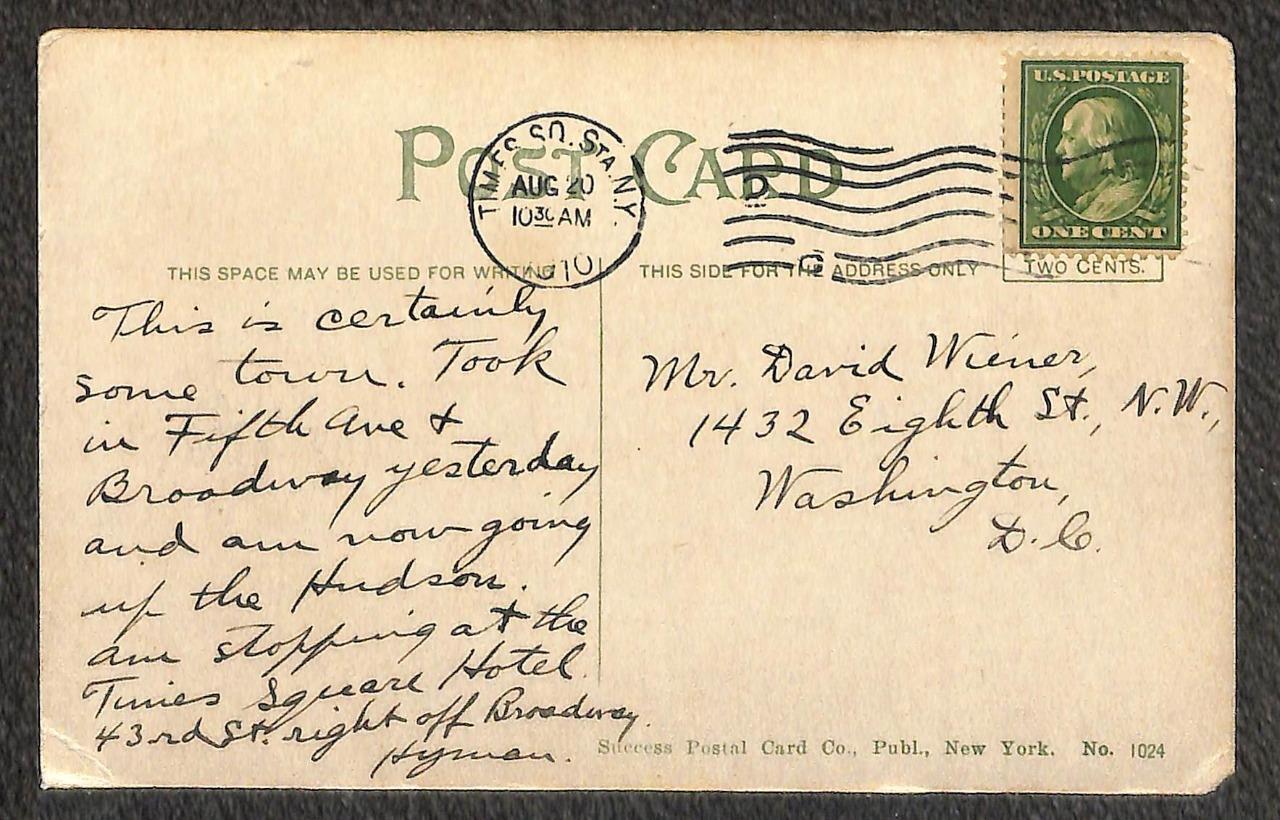 POST CARD
TIMES SQ. STA. N.Y.
AUG 20
10 30 AM
1910
D
C
U.S. POSTAGE
ONE CENT
TWO CENTS.
THIS SPACE MAY BE USED FOR WRITING
THIS SIDE FOR THE ADDRESS ONLY
This is certainly
some town. Took
in Fifth Ave &
Broadway yesterday
and am now going
up the Hudson.
am stopping at the
Times Square Hotel.
43rd St. right off Broadway.
Hyman.
Mr. David Wiener,
1432 Eighth St., N.W.,
Washington,
D.C.
Success Postal Card Co., Publ., New York. No. 1024